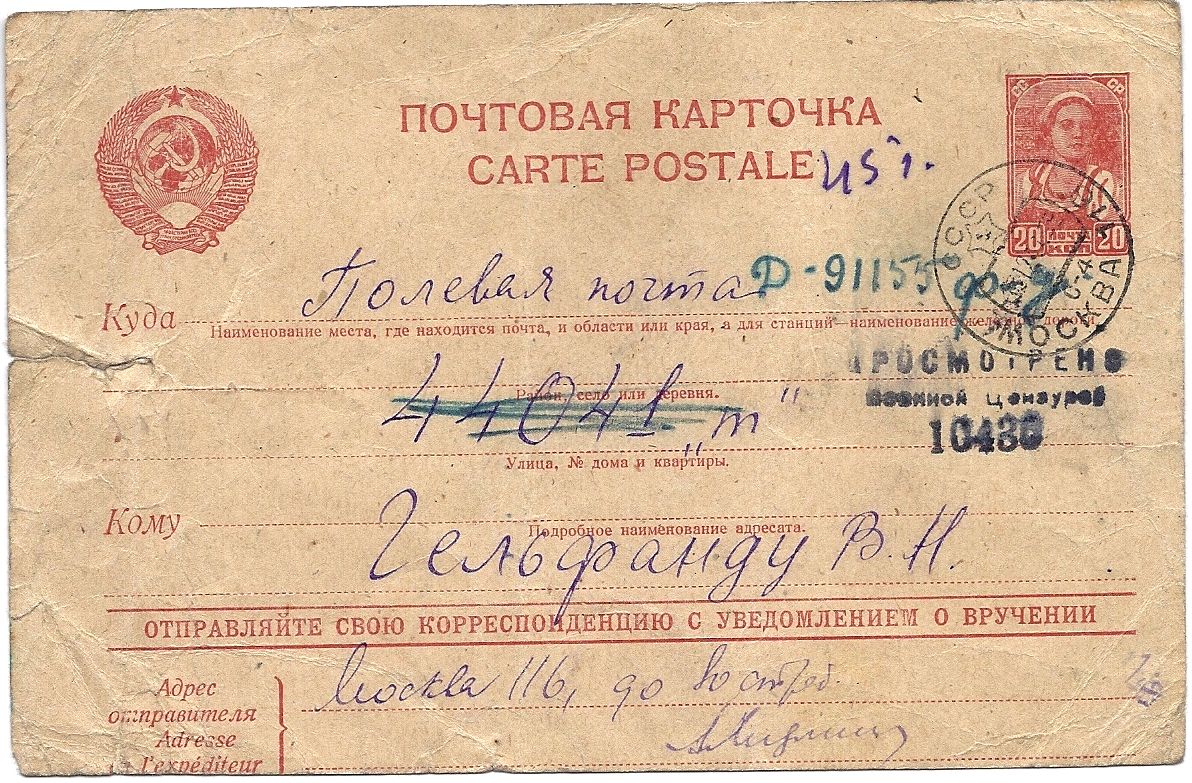 ПОЧТОВАЯ КАРТОЧКА
CARTE POSTALE
45 г.
СС СР
20 ПОЧТА 20
КОП
СССР МОСКВА
Куда Полевая почта Д-91155
Наименование места, где находится почта, и области или края, а для станций наименование
ПРОСМОТРЕНО
Военной Цензурой
10436
Район, село или деревня.
44041 „т"
Улица, № дома и квартиры.
Кому
Подробное наименование адресата.
Гельфанду В. Н.
ОТПРАВЛЯЙТЕ СВОЮ КОРРЕСПОНДЕНЦИЮ С УВЕДОМЛЕНИЕМ О ВРУЧЕНИИ
Адрес отправителя
Adresse
l'expéditeur
Москва 116, до востреб.